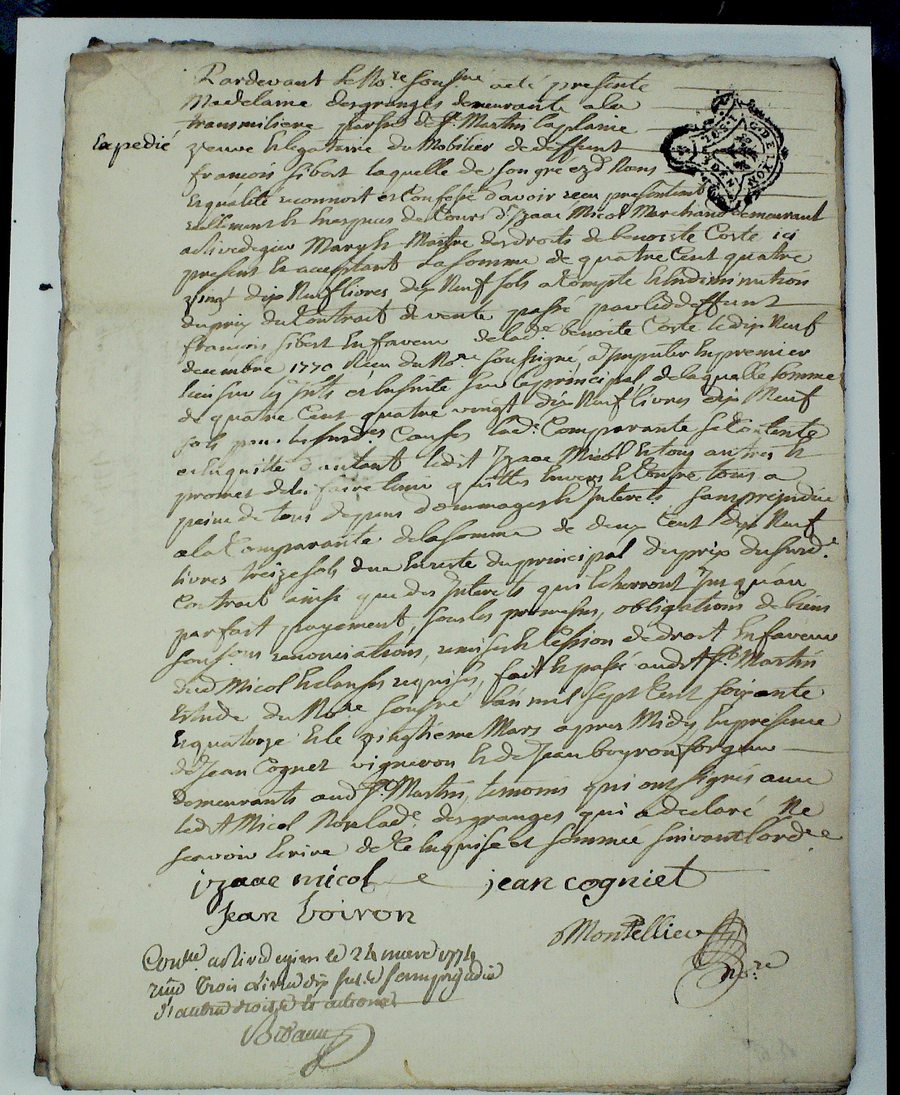 Pardevant le No.re soussné a été presente
Madelaine desgranges demeurante a la
transmiliere parsse de St. Martin la plaine
Expedié
veuve et legaterre du Mobilier de deffunt
françois fibert laquelle de son gré ezd. Noms
et qualité reconnoit et Confesse d'avoir reçu présentem.t
réellement et en espèces de Cours d'Izaac Micol Marchand demeurant
a Rivedegier Mary et Maitre des droits de benoitte Coste ici
present et acceptant la somme de quatre Cent quatre
vingt dix Neuf livres dix Neuf sols a Compte et en diminution
du prix du Contrait de vente passé par led. deffunt
françois fibert En faveur de lad.e benoite Coste le dix Neuf
decembre 1770 Reçu du No.re soussigné a Imputer En premier
lieu sur les Ints et Ensuitte sur le principal, de laquelle somme
de quatre Cent quatre vingt dix Neuf livres dix Neuf
sols pour les surd.es Causes lad.e Comparante se Contente
et En quitte d'autant ledit Izaac Micol Et tous autres et
promet de les faire tenir quittes Envers et Contre tous a
peine de tous depens dommages et Interets sans prejudice
a la Comparante de la somme de deux Cent dix Neuf
livres treize sols due En reste du principal du prix du surd.
Contrait ainsi que des Interets qui Echerront Jusqu'au
parfait payement, sous les promesses, obligations de biens
soumissions renonciations, remise et Cession de droit En faveur
dud Micol Et clauses requises, fait Et passé aud St. Martin
Etude du No.re soussné L'an mil sept Cent soixante
Et quatorze Et le vingtième Mars apres Midy En presence
de Jean Cognet vigneron Et de Jean boyron forgeur
demeurants aud St. Martin, temoins qui ont signés avec
ledt Micol Non lad.e desgranges qui a declaré Ne
scavoir Ecrire de ce Enquise et sommée suivant l'ord.ce
izaac micol jean cogniet
Jean boiron
Montellier
No.re
Con.llé a Rivedegier le 24 mars 1774
reçu trois livres dix sols sans prejudice
d'autres droits et actions
G. DE LYON